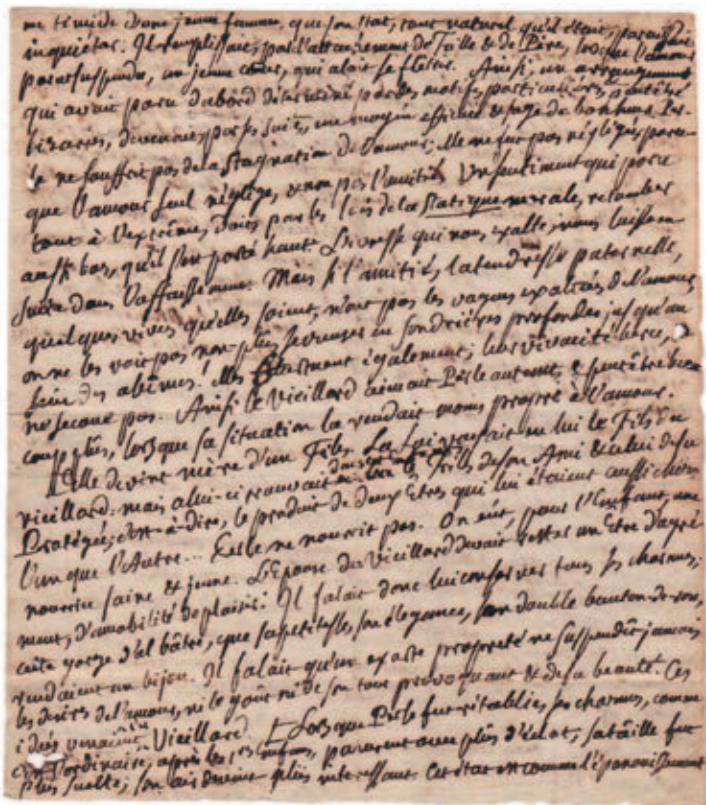 me timide d'une jeune femme, que son état, tout naturel qu'il était, paraissait
inquiéter. Il remplissait, par l'attachement de Fille & de Père, lorsque l'amour
parut suspendu, un jeune cœur, qui alait se flétrir. Ainsi, un arrangement
qui avait paru d'abord déterminé par des motifs particuliers, & même
bizarres, devenait, par ses suites, un moyen efficace & sage de bonheur. Per-
le ne souffrit pas de la stagnation de l'amour; elle ne fut pas négligée, parce-
que l'amour seul néglige, & non pas l'amitié. Un sentiment qui porte
tout à l'extrême, doit, par les lois de la statique morale, retomber
aussi bas, qu'il s'est porté haut. L'ivresse qui nous exalte, nous laisse en-
suite dans l'affaissement. Mais si l'amitié, la tendresse paternelle,
quelque vives qu'elles soient, n'ont pas les vagues exaltées de l'amour,
on ne les voit pas, non-plus, se creuser en fondrières profondes jusqu'au
sein des abîmes. Elles échauffent également; leur vivacité berce, &
ne secoue pas. Ainsi le Vieillard aimait Perle autant, & peut-être beau-
coup plus, lorsque sa situation la rendait moins propre à l'amour.
Elle devint mère d'un Fils. La Loi voyait en lui le Fils du
vieillard: mais celui-ci trouvait dans cet enfant le Fils de son Ami & celui de sa
Protégée; c'est-à-dire, le produit de deux Etres qui lui étaient aussi chers
l'un que l'Autre... Perle ne nourrit pas. On eut, pour l'Enfant, une
nourrice saine & jeune. L'Epouse du Vieillard devait rester un Etre d'agré-
ment, d'amabilité, de plaisir: Il falait donc lui conserver tous ses charmes;
cette gorge d'albâtre, que sa petitesse, son élégance, son double bouton-de-rose,
rendaient un bijou. Il falait qu'une exacte propreté ne suspendît jamais
les désirs de l'amour, ni le goût ni de son tout provoquant & de sa beauté. Ces
idées venaient du Vieillard. Lorsque Perle fut rétablie, ses charmes, comme
c'est l'ordinaire, après les 1ers Enfans, parurent avec plus d'éclat; sa taille fut
plus svelte; son air devint plus intéressant. Cet état est comme l'épanouissement